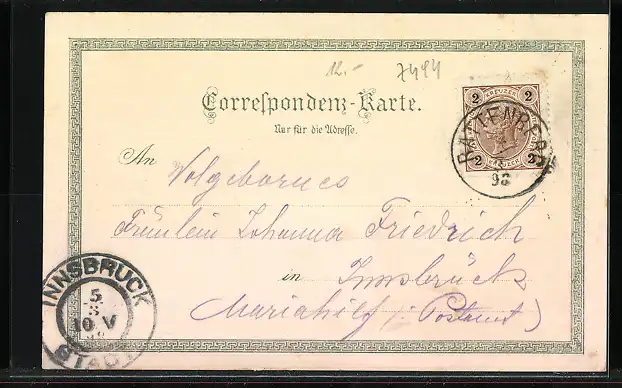 12.- 7494
Correspondenz-Karte.
Nur für die Adresse.
2 KREUZER 2
2 KREUZER 2
RATTENBERG
98
An Wolgebornes
Fräulein Johanna Friedrich
in Innsbruck
Mariahilf (: Postamt :)
INNSBRUCK
5
3
10.V
STADT